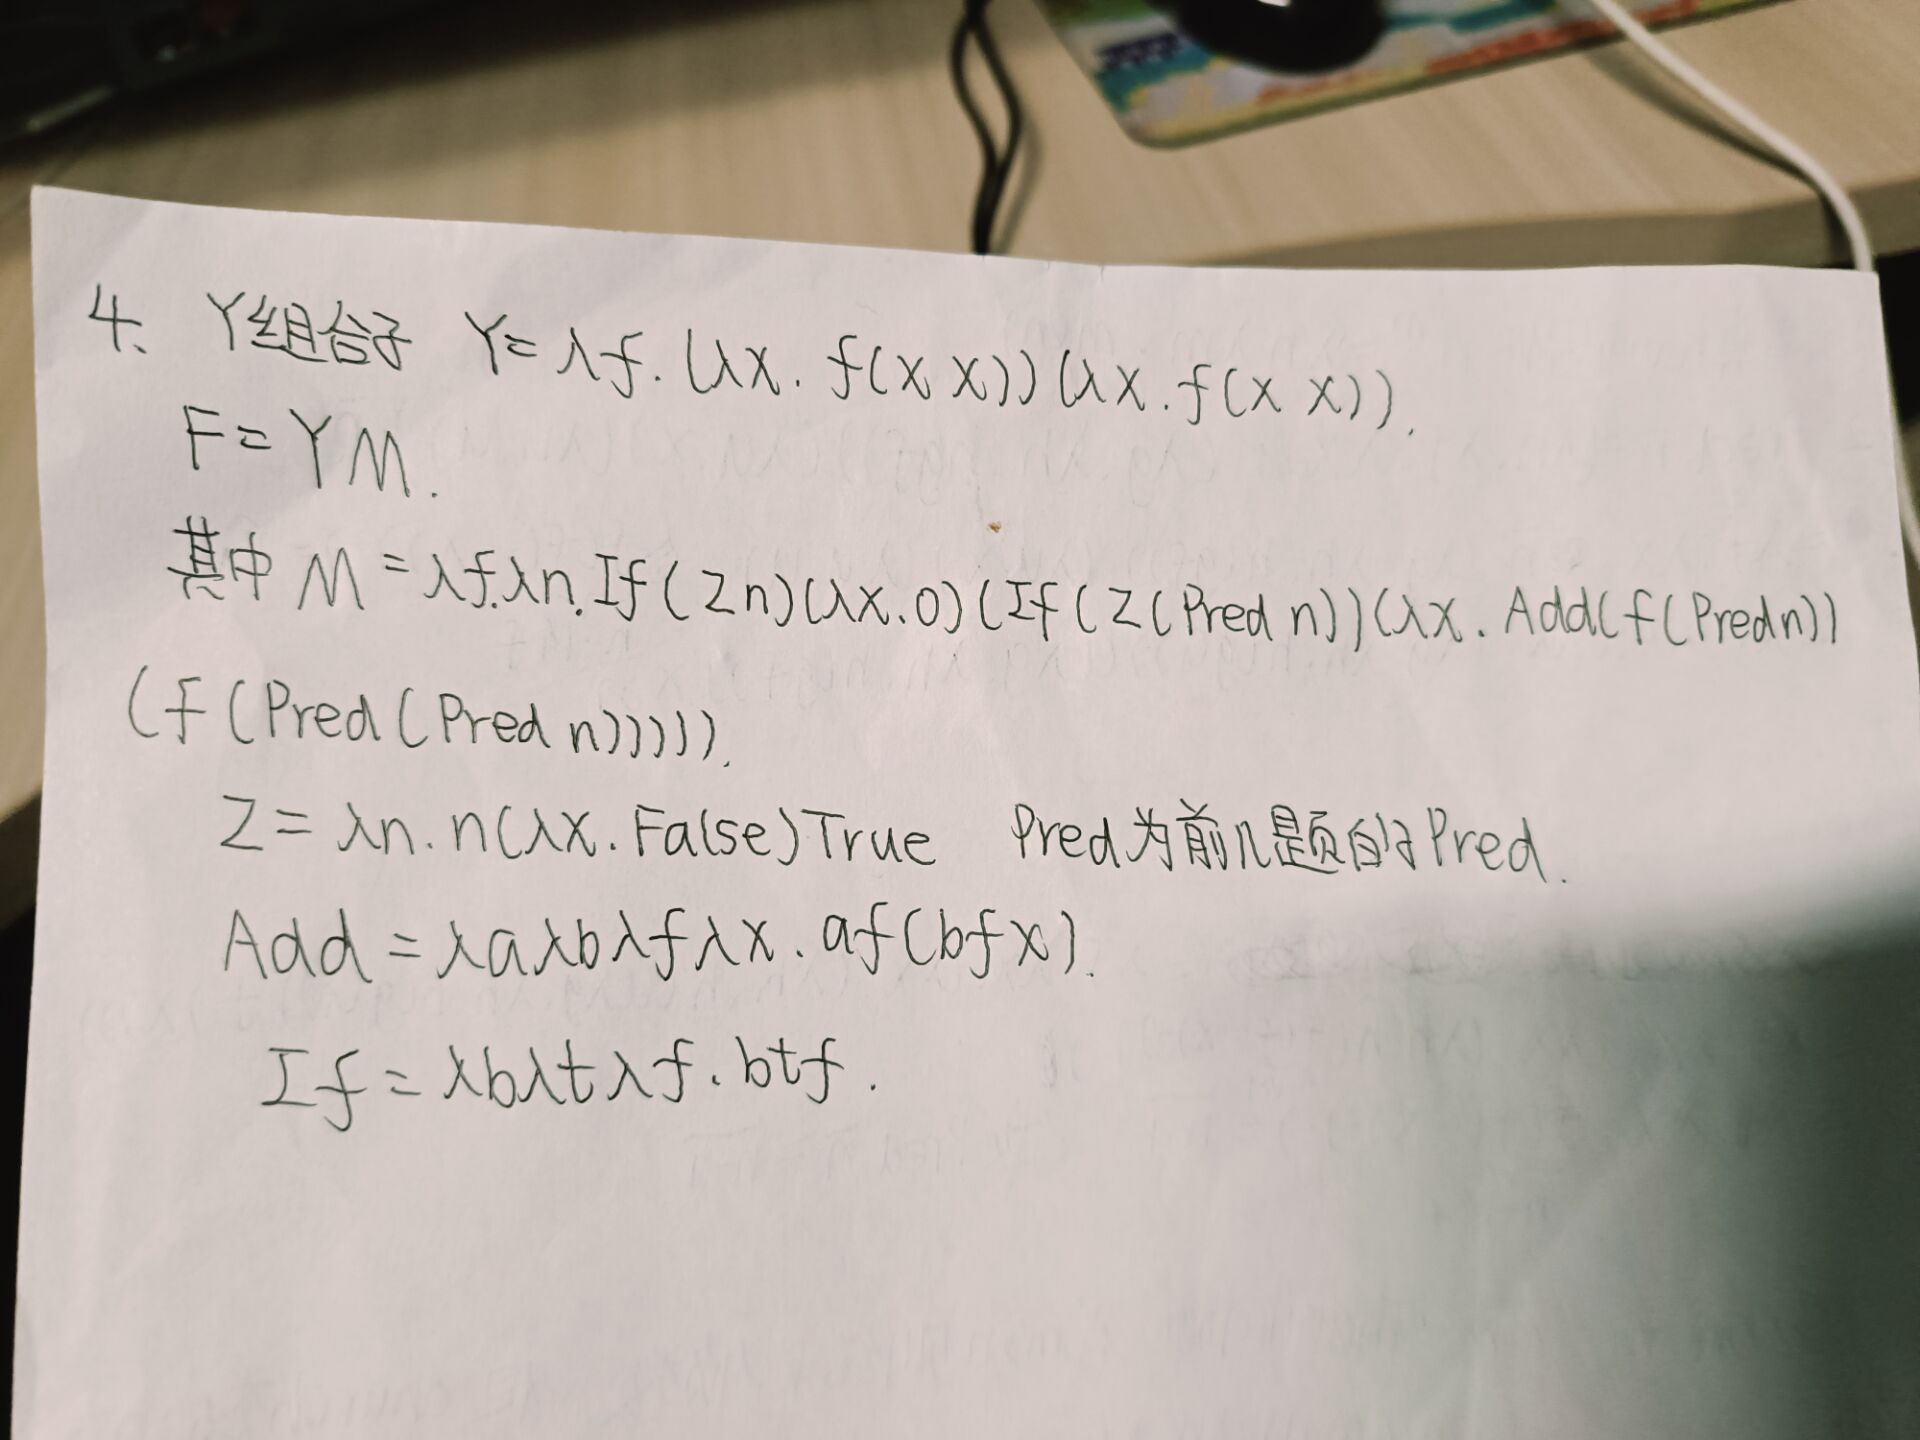 4、 Y组合子 Y=λf.(λx.f(x x))(λx.f(x x)).
F=YM.
其中 M=λf.λn.If(Zn)(λx.0)(If(Z(Pred n))(λx.Add(f(Pred n))
(f(Pred(Pred n))))).
Z=λn.n(λx.False)True Pred为前几题的Pred.
Add=λaλbλfλx.af(bfx).
If=λbλtλf.btf.